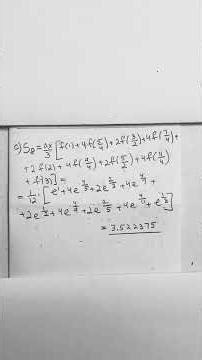 c) S₈ = Δx/3 [f(1)+4f(5/4)+2f(3/2)+4f(7/4)+
+2f(2)+4f(9/4)+2f(5/2)+4f(11/4)
+f(3)] =
= 1/12 · [e¹+4e^(4/5)+2e^(2/3)+4e^(4/7)+
+2e^(1/2)+4e^(4/9)+2e^(2/5)+4e^(4/11)+e^(1/3)]
= 3.522375